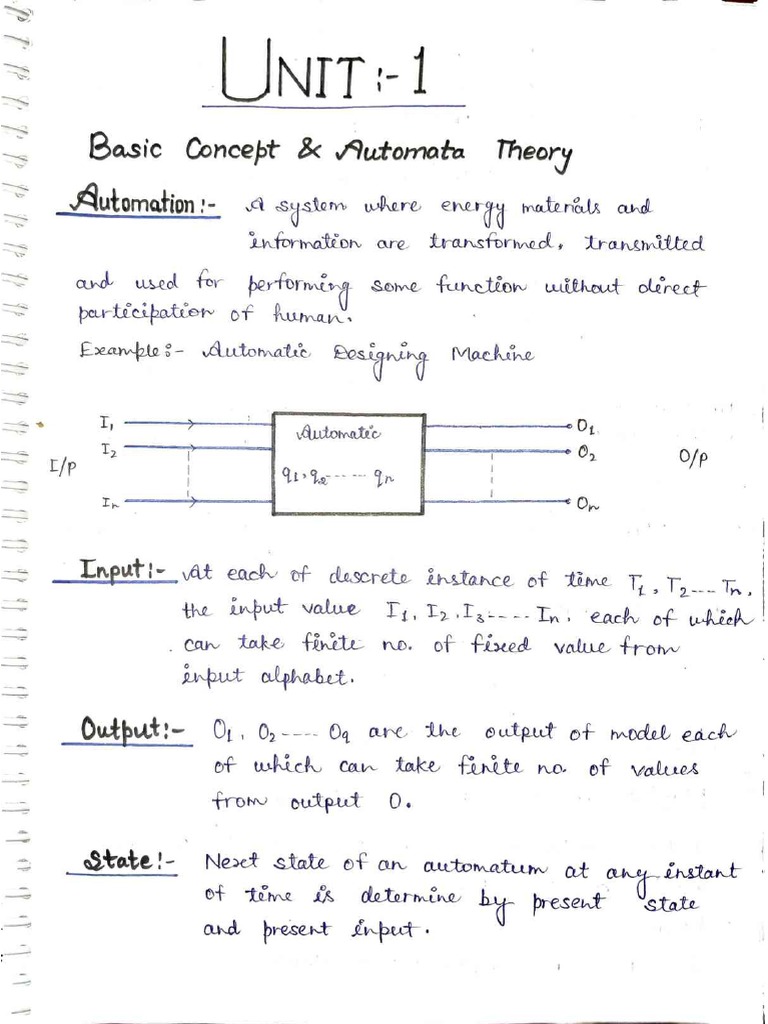 UNIT :- 1
Basic Concept & Automata Theory
Automation :- A system where energy materials and
information are transformed, transmitted
and used for performing some function without direct
participation of human.
Example :- Automatic Designing Machine
I1
I2
In
I/P
Automatic
q1, q2 ----- qn
O1
O2
On
O/P
Input :- At each of discrete instance of time T1, T2 --- Tn,
the input value I1, I2, I3 ----- In, each of which
can take finite no. of fixed value from
input alphabet.
Output :- O1, O2 ---- Oq are the output of model each
of which can take finite no. of values
from output O.
State :- Next state of an automatum at any instant
of time is determine by present state
and present input.